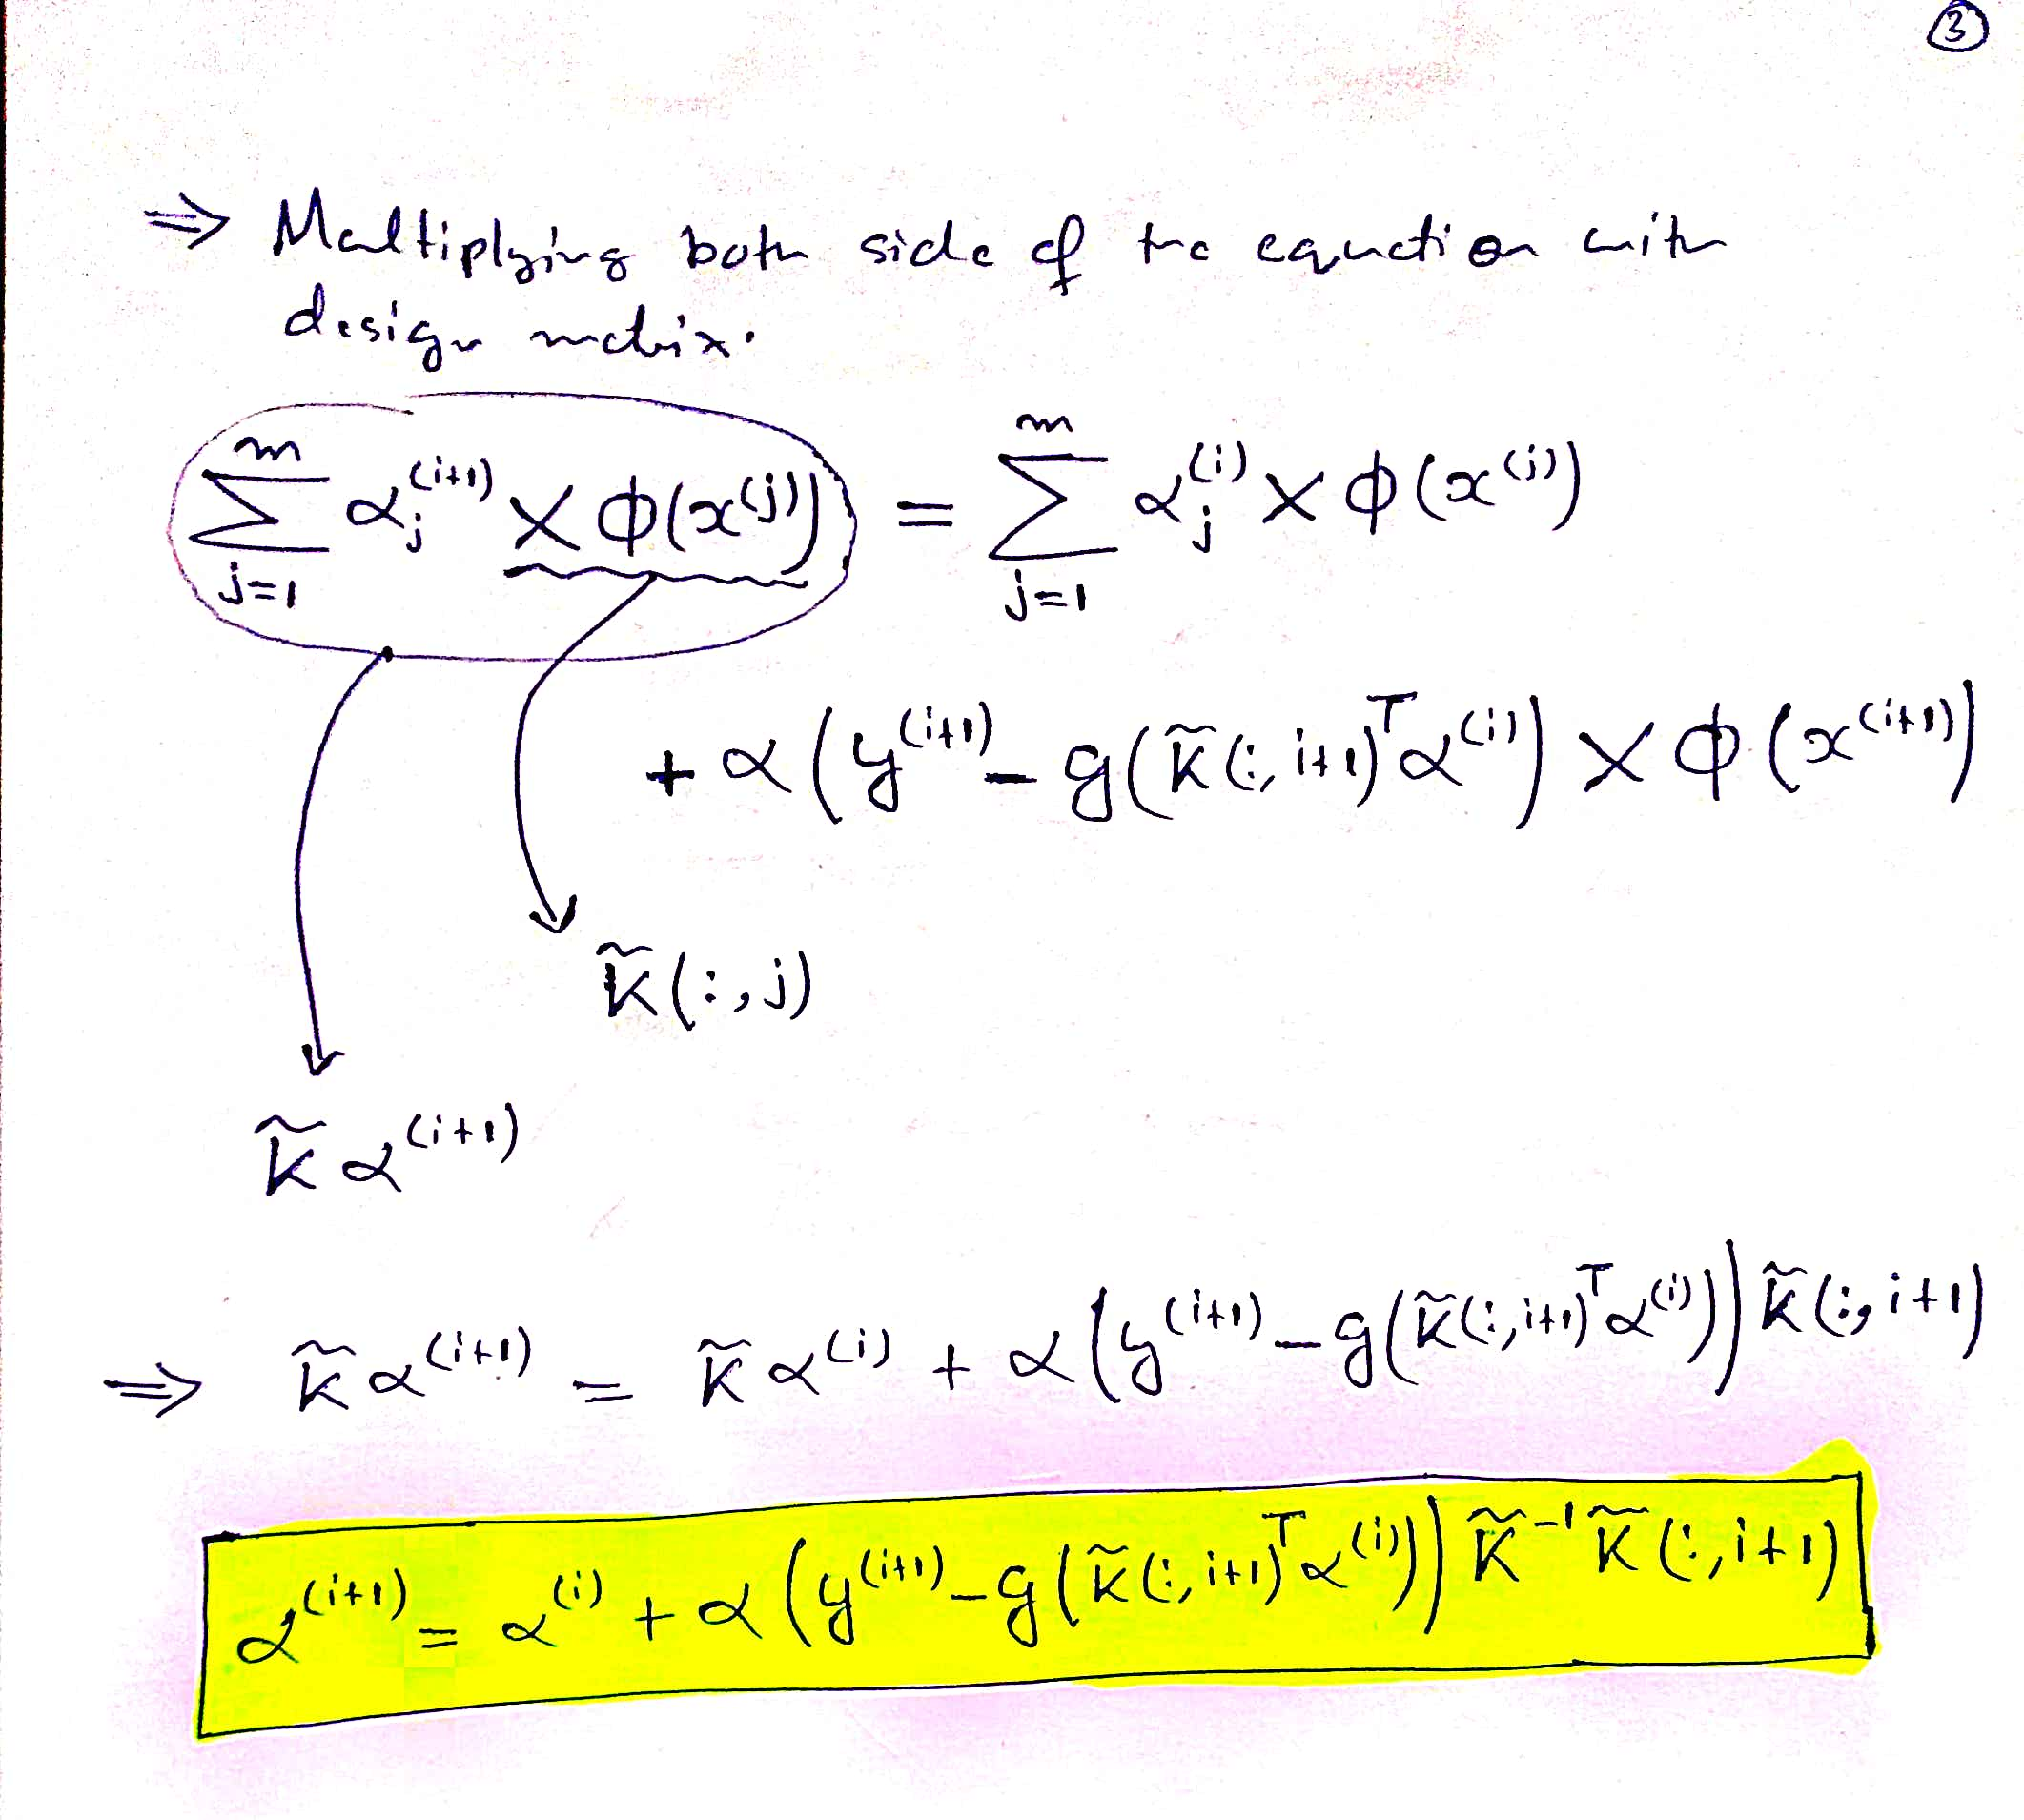 ③
⇒ Multiplying both side of the equation with
design matrix.
∑_{j=1}^{m} α_j^{(i+1)} X Φ(x^{(j)}) = ∑_{j=1}^{m} α_j^{(i)} X Φ(x^{(j)})
+ α (y^{(i+1)} - g(K̃(:, i+1)^T α^{(i)}) X Φ(x^{(i+1)})
K̃(:,j)
K̃ α^{(i+1)}
⇒ K̃ α^{(i+1)} = K̃ α^{(i)} + α (y^{(i+1)} - g(K̃(:,i+1)^T α^{(i)})) K̃(:, i+1)
α^{(i+1)} = α^{(i)} + α (y^{(i+1)} - g(K̃(:, i+1)^T α^{(i)})) K̃^{-1} K̃(:, i+1)